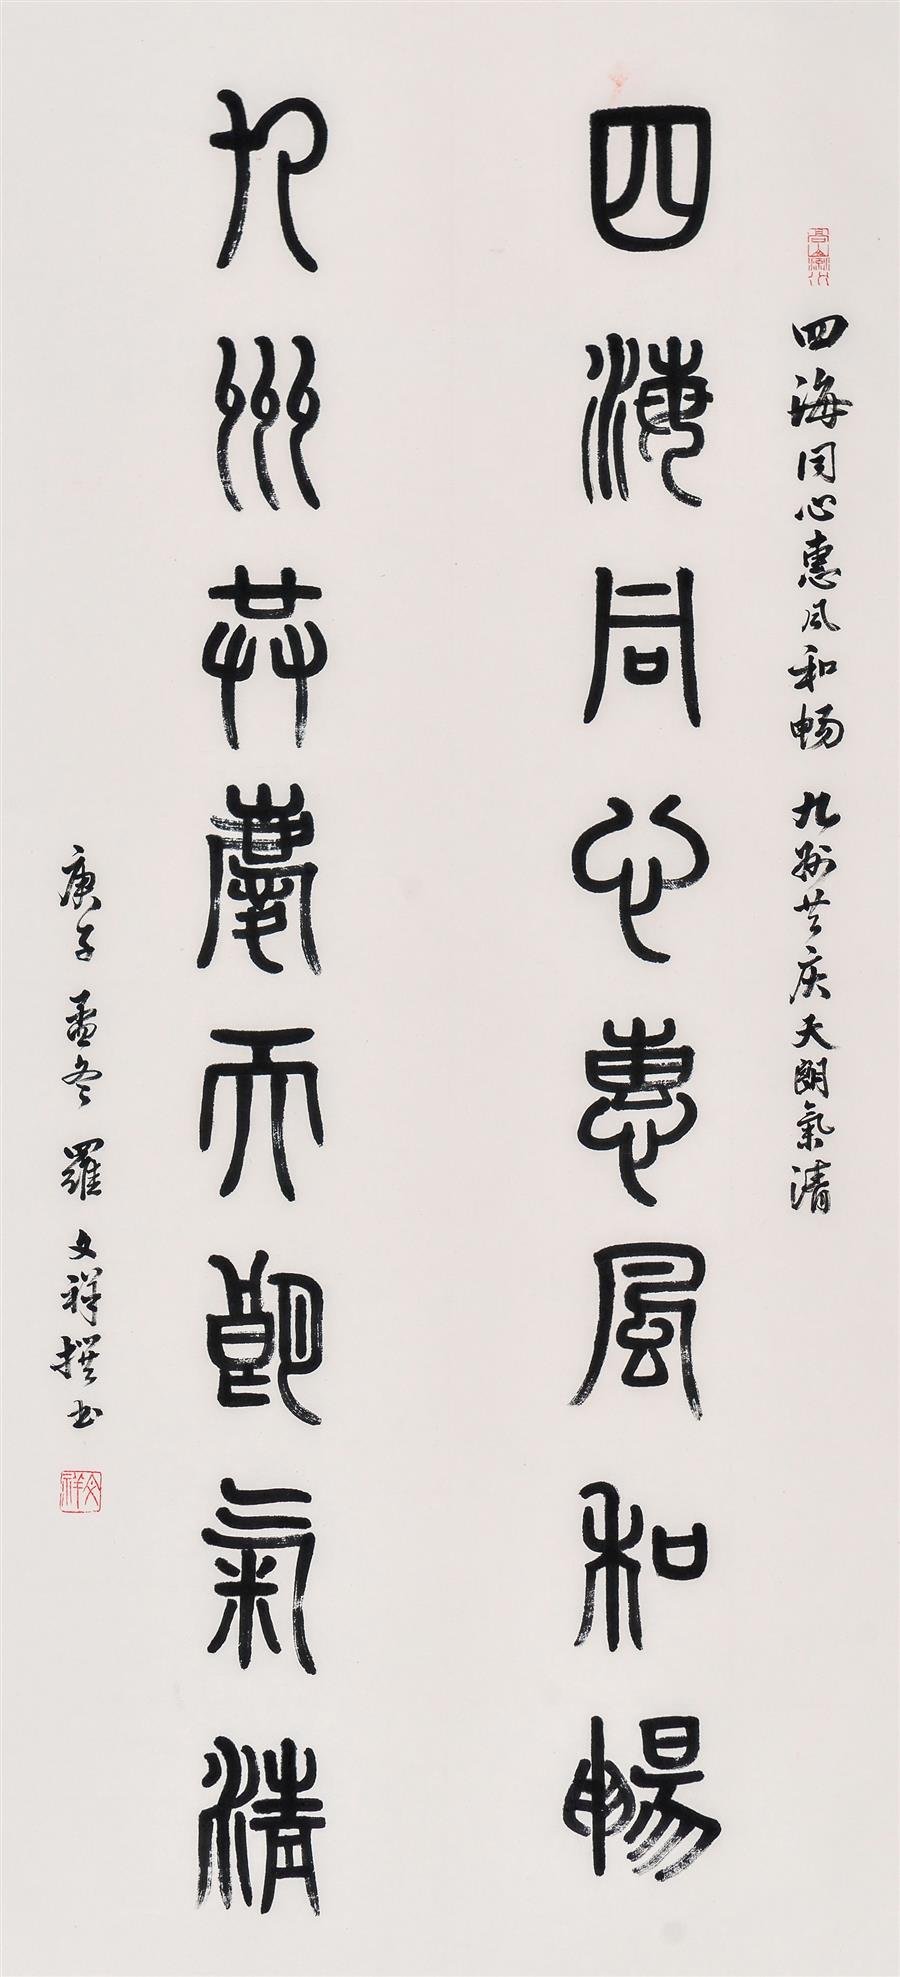 四海同心惠风和畅 九州共庆天朗氣清
四海同心惠風和暢
九州共慶天朗氣清
庚子孟冬 羅文祥撰书
文祥